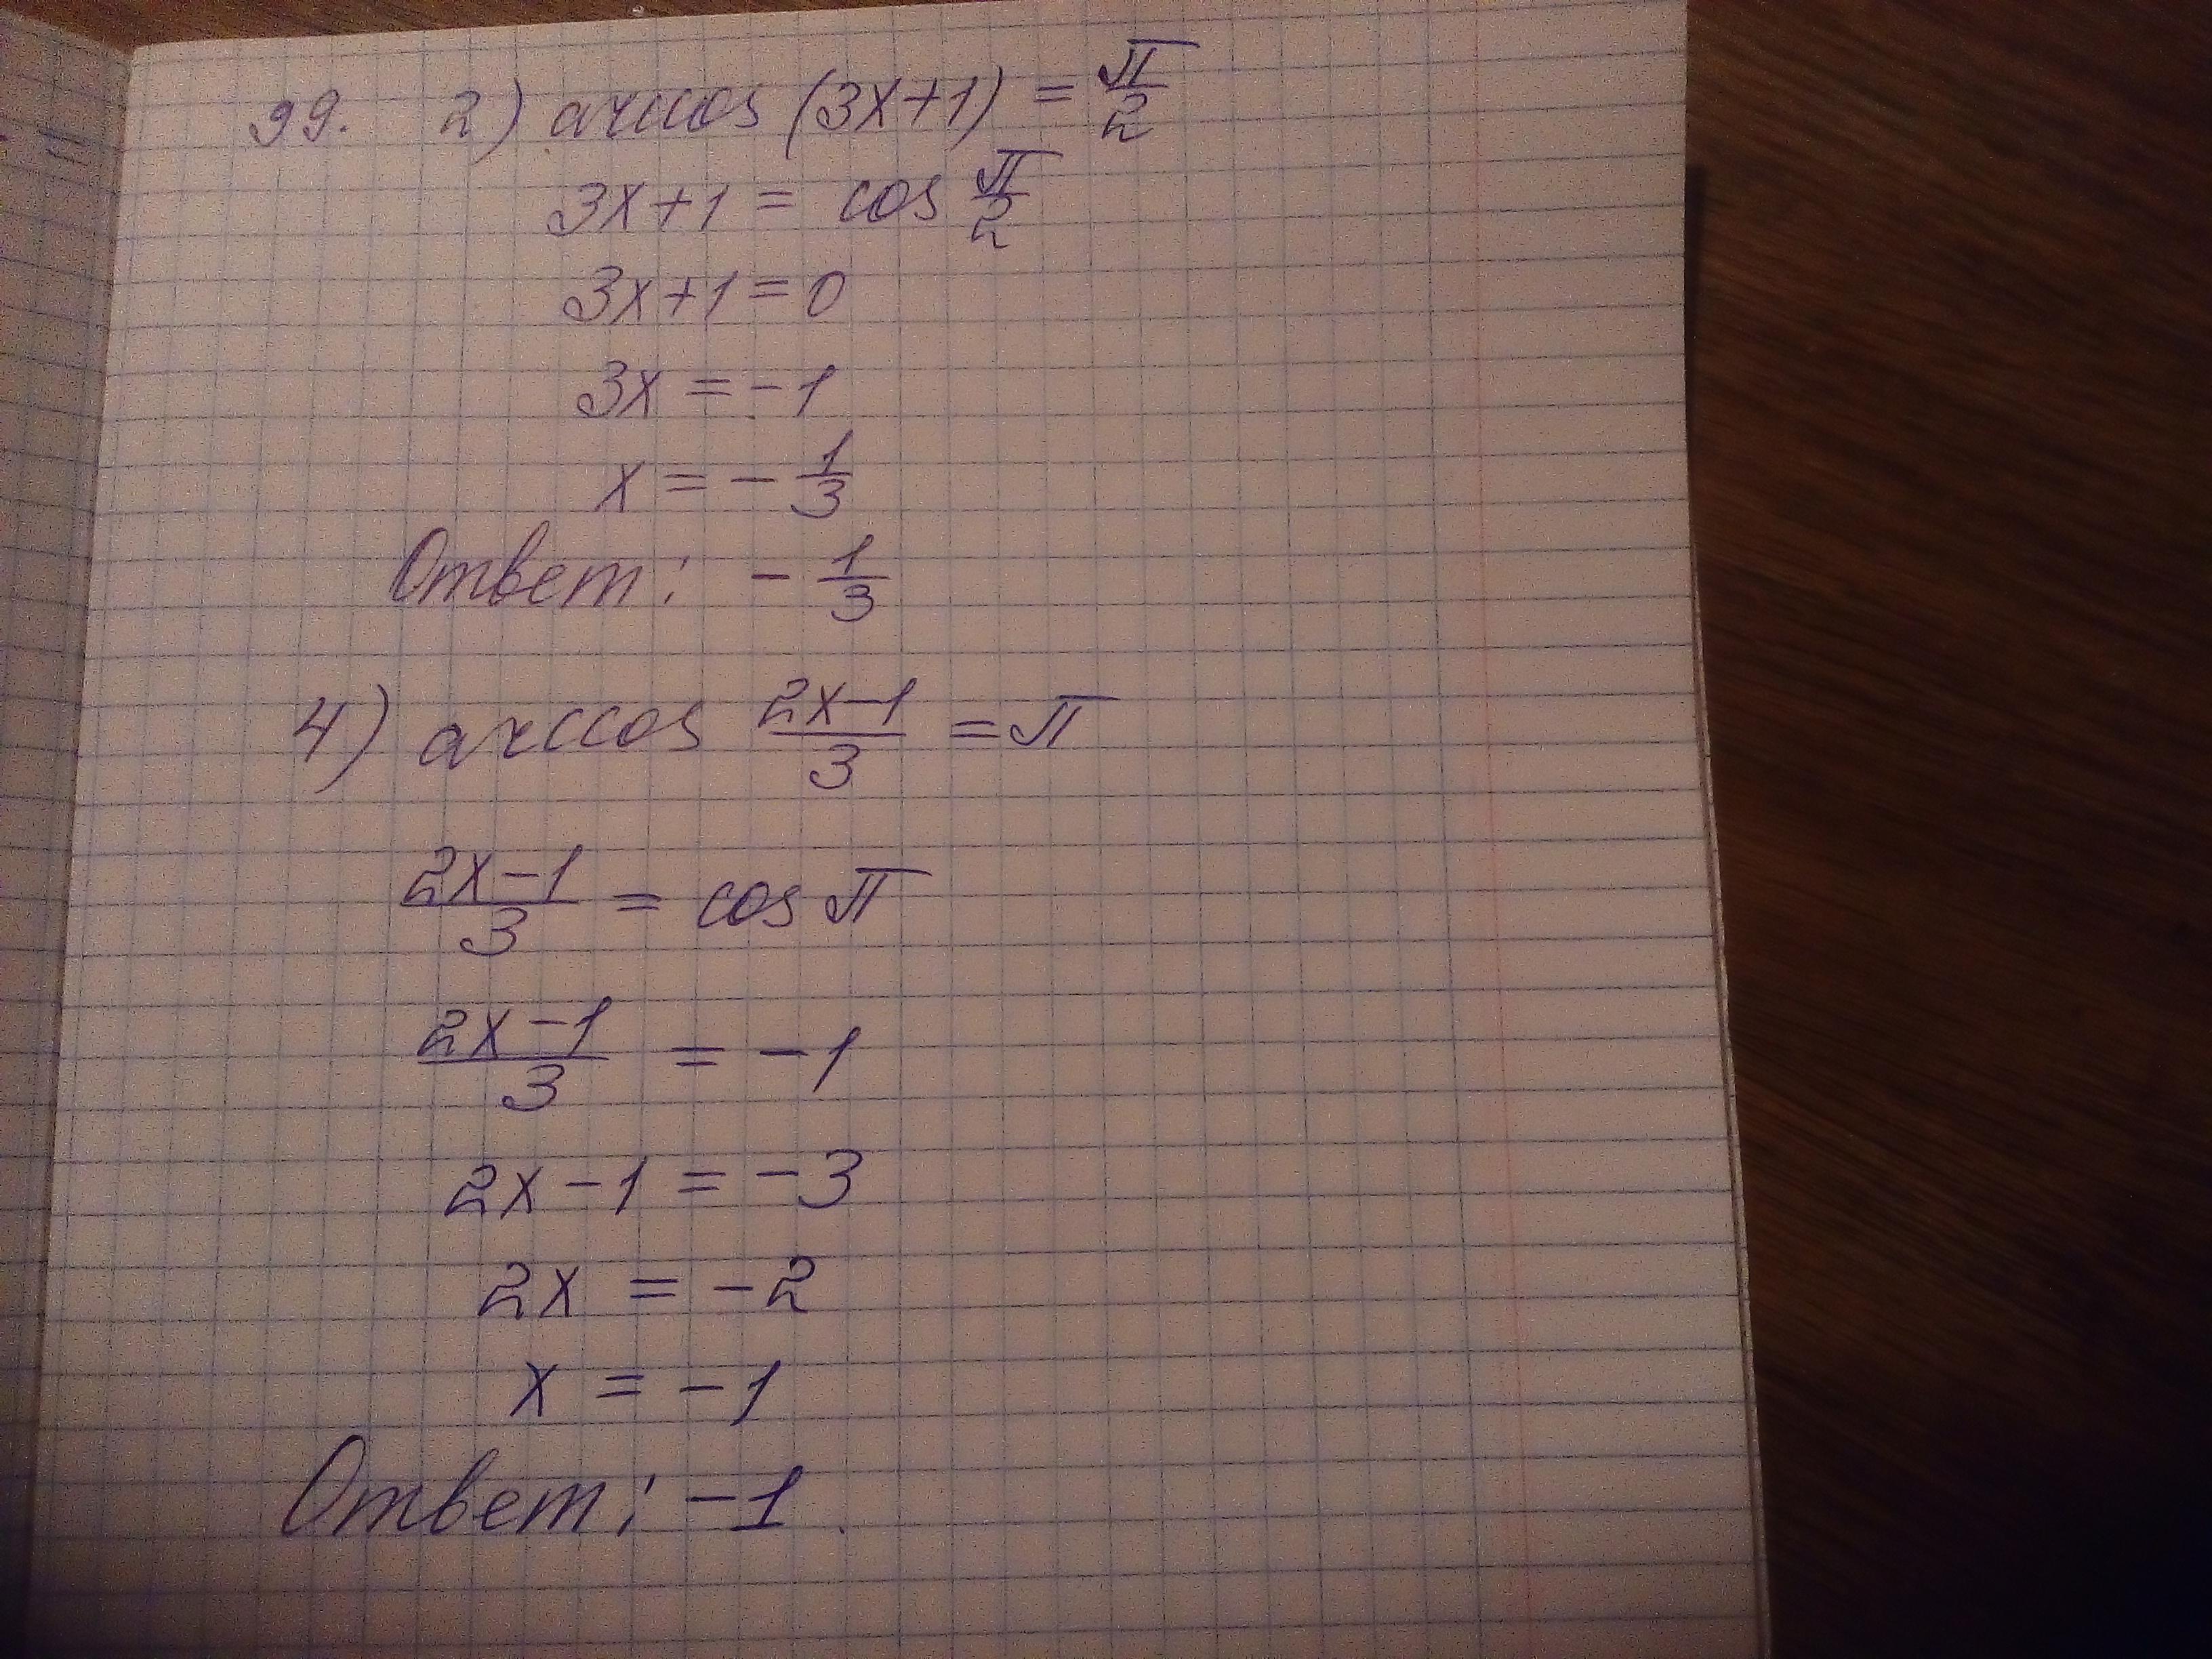 99. 2) arccos (3x+1) = π/2
3x+1 = cos π/2
3x+1=0
3x = -1
x = - 1/3
Ответ: - 1/3
4) arccos (2x-1)/3 = π
(2x-1)/3 = cos π
(2x-1)/3 = -1
2x-1 = -3
2x = -2
x = -1
Ответ: -1.